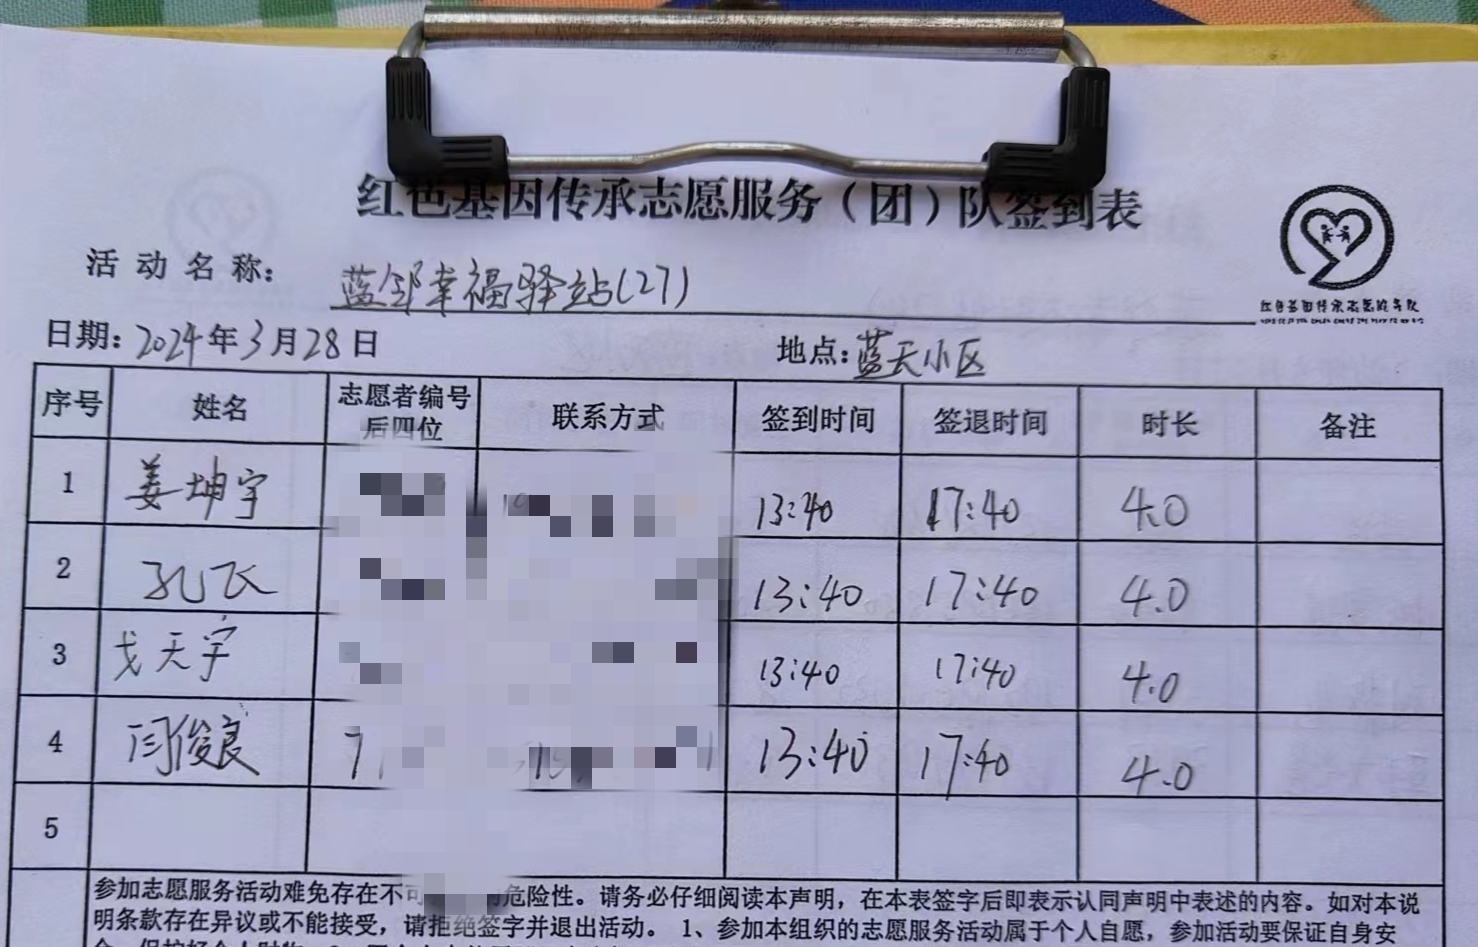 红色基因传承志愿服务（团）队签到表
活动名称： 蓝邻幸福驿站(27)
红色基因传承志愿服务队
日期：2024年3月28日 地点：蓝天小区
序号 姓名 志愿者编号后四位 联系方式 签到时间 签退时间 时长 备注
1 姜坤宇 13:40 17:40 4.0
2 孔飞 13:40 17:40 4.0
3 戈天宇 13:40 17:40 4.0
4 闫俊良 7 13:40 17:40 4.0
5
参加志愿服务活动难免存在不可 危险性。请务必仔细阅读本声明，在本表签字后即表示认同声明中表述的内容。如对本说
明条款存在异议或不能接受，请拒绝签字并退出活动。 1、参加本组织的志愿服务活动属于个人自愿，参加活动要保证自身安